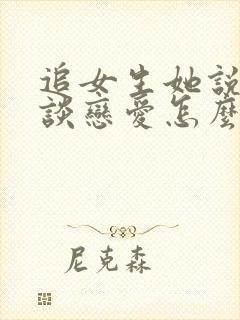 追女生她說
談戀愛怎麼
尼克森